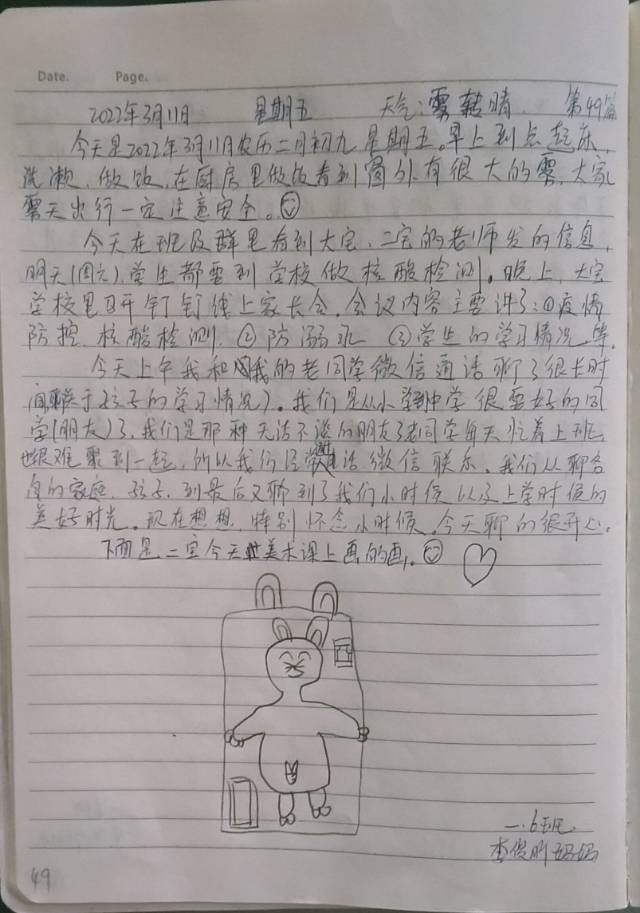 Date. Page.
2022年3月11日 星期五 天气:雾转晴 第49篇
今天是2022年3月11日农历二月初九 星期五。早上到点起床,
洗漱、做饭,在厨房里做饭看到窗外有很大的雾,大家
雾天出行一定注意安全。
今天在班级群里看到大宝、二宝的老师发的信息,
明天(周六),学生都要到学校做核酸检测。晚上,大宝
学校里召开钉钉线上家长会,会议内容主要讲了:①疫情
防控,核酸检测 ②防溺水 ③学生的学习情况等.
今天上午我和我的老同学微信通话聊了很长时
间(关于孩子的学习情况)。我们是从小学到中学很要好的同
学(朋友)了,我们是那种无话不谈的朋友了老同学每天忙着上班,
也很难聚到一起,所以我们经常电话微信联系。我们从聊各
自的家庭、孩子,到最后又聊到了我们小时候以及上学时候的
美好时光。现在想想,特别怀念小时候。今天聊的很开心。
下面是二宝今天美术课上画的画。
一.6班
李俊昕妈妈
49